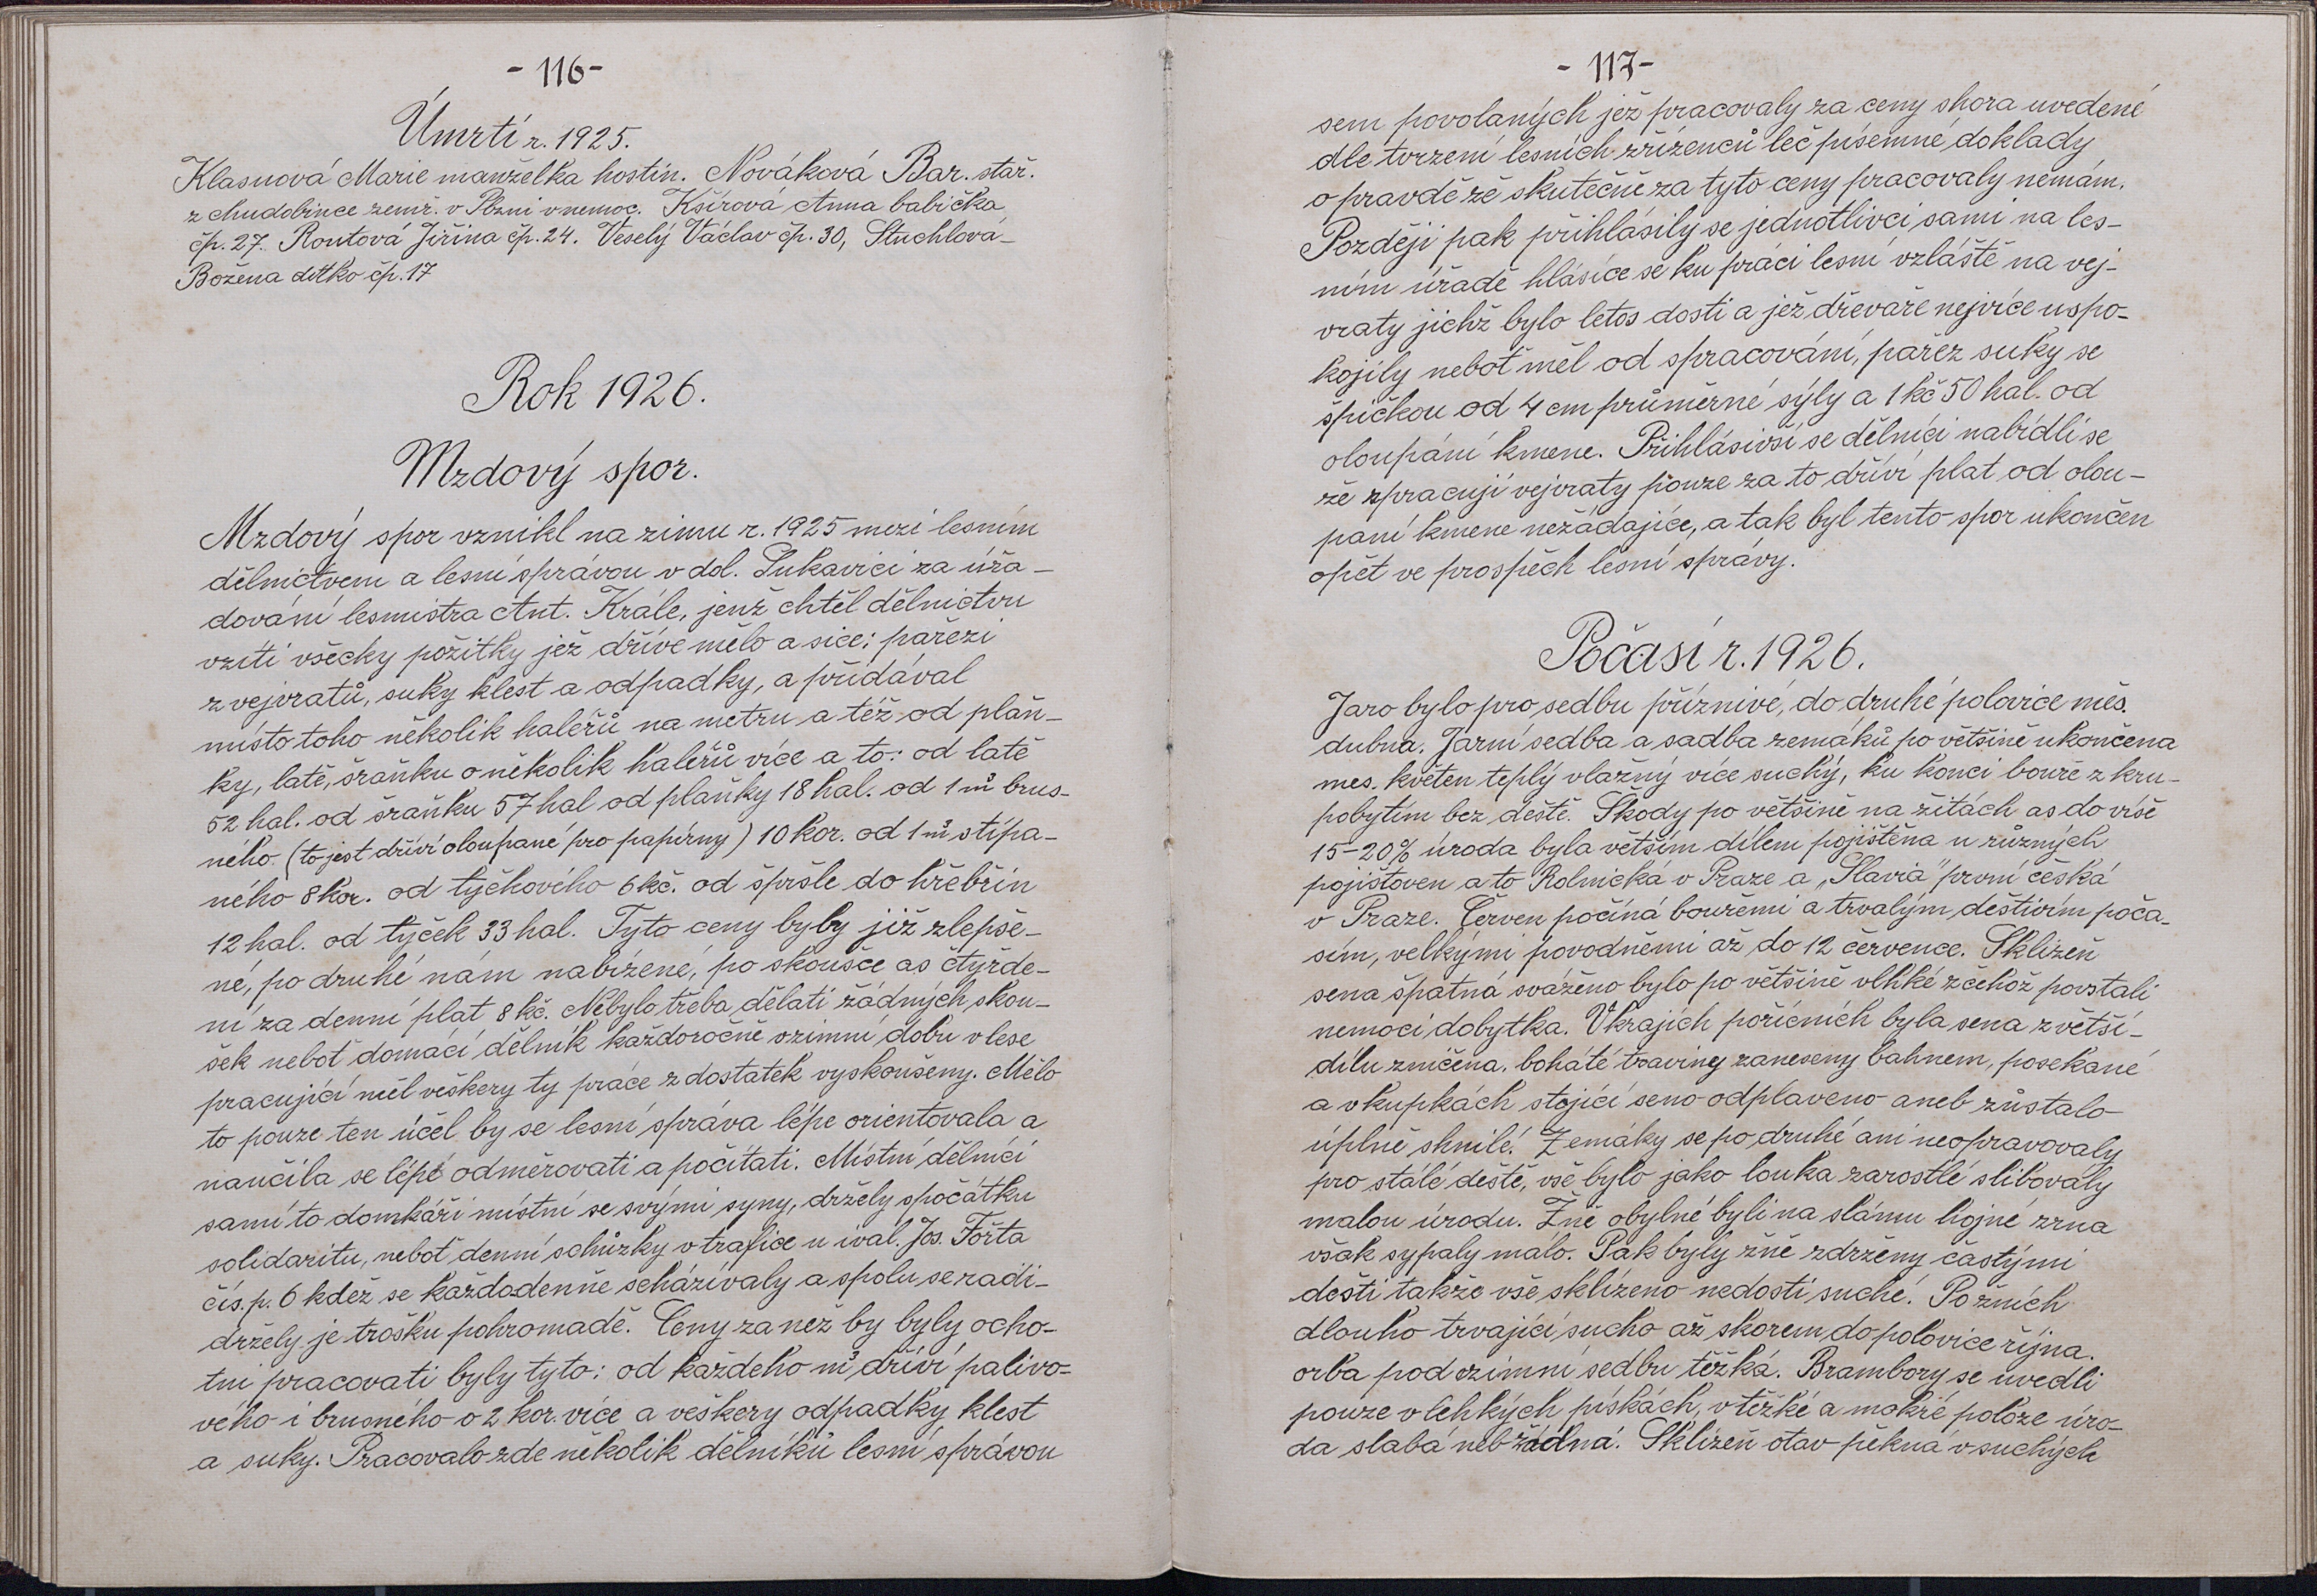 - 116 -
Úmrtí r. 1925.
Klasnová Marie manželka hostin. Nováková Bar. stař.
z chudobince zemř. v Plzni v nemoc. Kšírová Anna babička
čp. 27. Routová Jiřina čp. 24. Veselý Václav čp. 30, Stuchlová
Božena dettko čp. 17
Rok 1926.
Mzdový spor.
Mzdový spor vznikl na zimu r. 1925 mezi lesním
dělnictvem a lesní správou v dol. Lukavici za úřa-
dování lesmistra Ant. Krále, jenž chtěl dělnictvu
vzíti všecky požitky jež dříve mělo a sice: pařezi
z vejvratů, suky klest a odpadky, a přidával
místo toho několik haléřů na metru a též od plaň-
ky, latě, šraňku o několik haléřů více a to: od latě
52 hal. od šraňku 57 hal od plaňky 18 hal. od 1 m³ brus-
ného. (to jest dříví oloupané pro papírny) 10 kor. od 1 m³ stípa-
ného 8 kor. od tyčkového 6 kč. od špršle do hřebřin
12 hal. od tyček 33 hal. Tyto ceny byby již zlepše-
né, po druhé nám nabízené, po skoušce as čtyřde-
ní za denní plat 8 kč. Nebylo třeba dělati žádných skou-
šek neboť domácí dělník každoročně vzimní dobu v lese
pracující měl veškery ty práce z dostatek vyskoušeny. Mělo
to pouze ten účel by se lesní správa lépe orientovala a
naučila se lépe odměrovati a počítati. Místní dělníci
samí to domkáři místní se svými syny, držely spočátku
solidaritu, neboť denní schůzky v trafice u ival. Jos. Fořta
čís. p. 6 kdež se každodenně scházívaly a spolu se radi-
držely je trošku pohromadě. Ceny za než by byly ocho-
tni pracovati byly tyto: od každeho m³ dříví palivo-
vého i brusného o 2 kor. více a veškery odpadky klest
a suky. Pracovalo zde několik dělníků lesní správou
- 117 -
sem povolaných jež pracovaly za ceny shora uvedené
dle tvrzení lesních zřízenců leč písemné doklady
o pravdě že skutečně za tyto ceny pracovaly nemám.
Později pak přihlásily se jednotlivci sami na les-
ním úřadě hlásíce se ku práci lesní vzláště na vej-
vraty jichž bylo letos dosti a jež dřevaře nejvíce uspo-
kojily neboť měl od spracování, pařez suky se
špičkou od 4 cm průměrné sýly a 1 kč 50 hal. od
oloupání kmene. Přihlásivší se dělníci nabídli se
že zpracují vejvraty pouze za to dříví plat od olou-
paní kmene nežádajíce, a tak byl tento spor ukončen
opět ve prospěch lesní správy.
Počasí r. 1926.
Jaro bylo pro sedbu příznivé, do druhé polovice měs.
dubna. Jarní sedba a sadba zemáků po většině ukončena
mes. květen teplý vlažný více suchý, ku konci bouře z kru-
pobytím bez deště. Škody po většině na žitách as do víše
15-20% úroda byla větším dílem pojištěna u různých
pojišťoven a to Rolnická v Praze a „Slavia" první česká
v Praze. Červen počíná bouřemi a trvalým deštivím poča-
sím, velkými povodněmi až do 12 července. Sklizeň
sena špatná sváženo bylo po většině vlhké z čehož povstali
nemoci dobytka. V krajích poříčních byla sena z větší-
dílu zničena. boháté traviny zaneseny bahnem, posekané
a v kupkách stojící seno odplaveno aneb zůstalo
úplně shnilé. Zemáky se po druhé ani neopravovaly
pro stálé deště, vše bylo jako louka zarostlé slibovaly
malou úrodu. Žně obylné byli na slámu hojné zrna
však sypaly málo. Pak byly žně zdrženy častými
dešti takže vše sklízeno nedosti suché. Po žních
dlouho trvající sucho až skorem do polovice října.
orba pod ozimní sedbu těžká. Brambory se uvedli
pouze v lehkých pískách, v těžké a mokré poloze úro-
da slabá neb žádná. Sklizeň otav pěkná v suchých